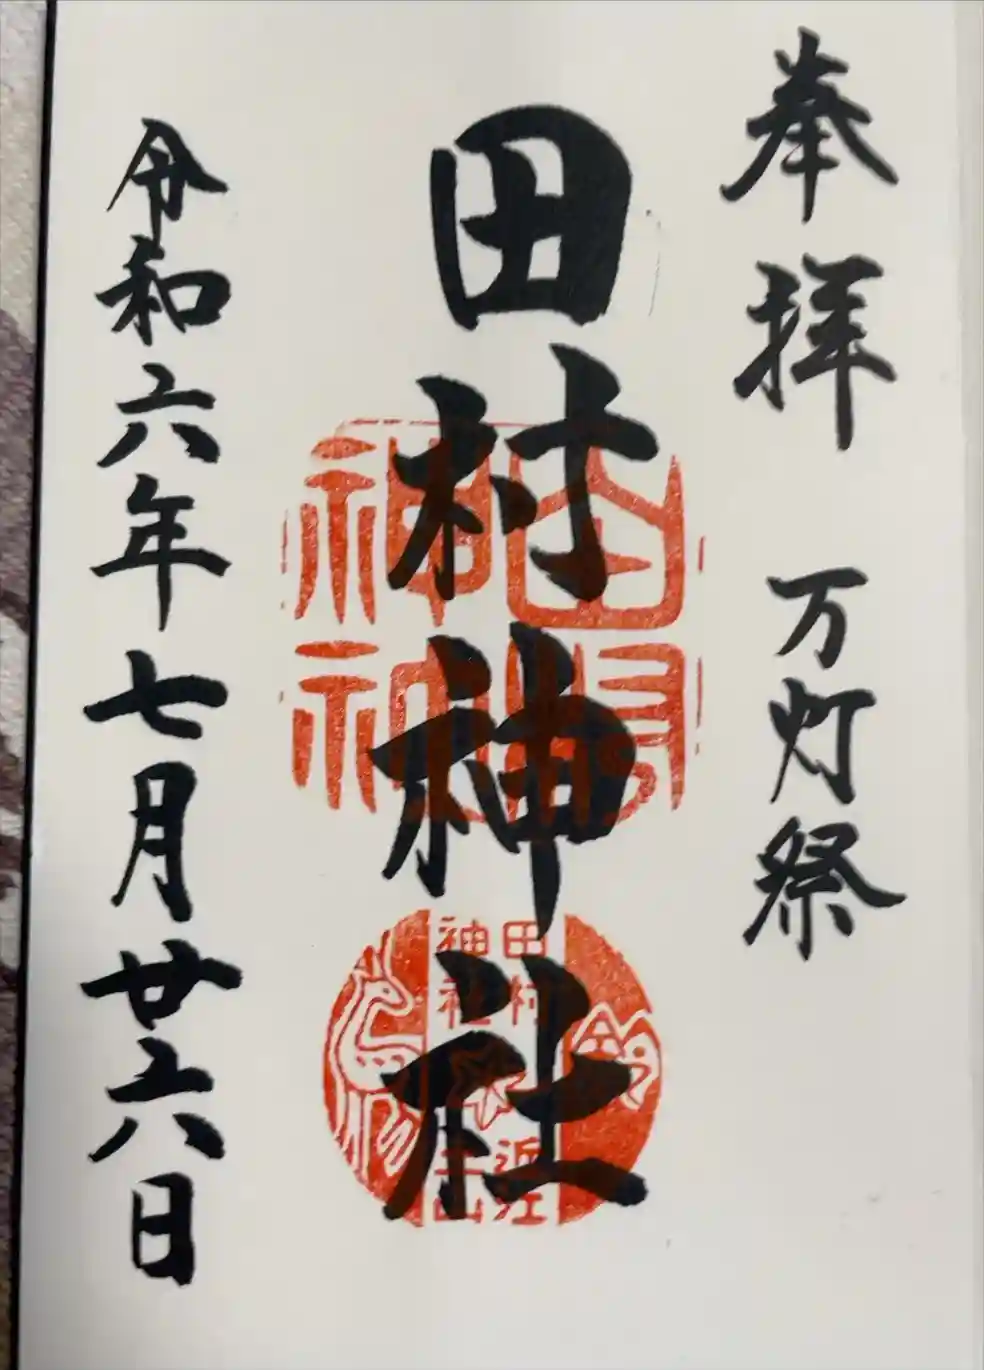 奉拝
万灯祭
田村神社
令和六年七月廿六日
田村
神社
近江
土山